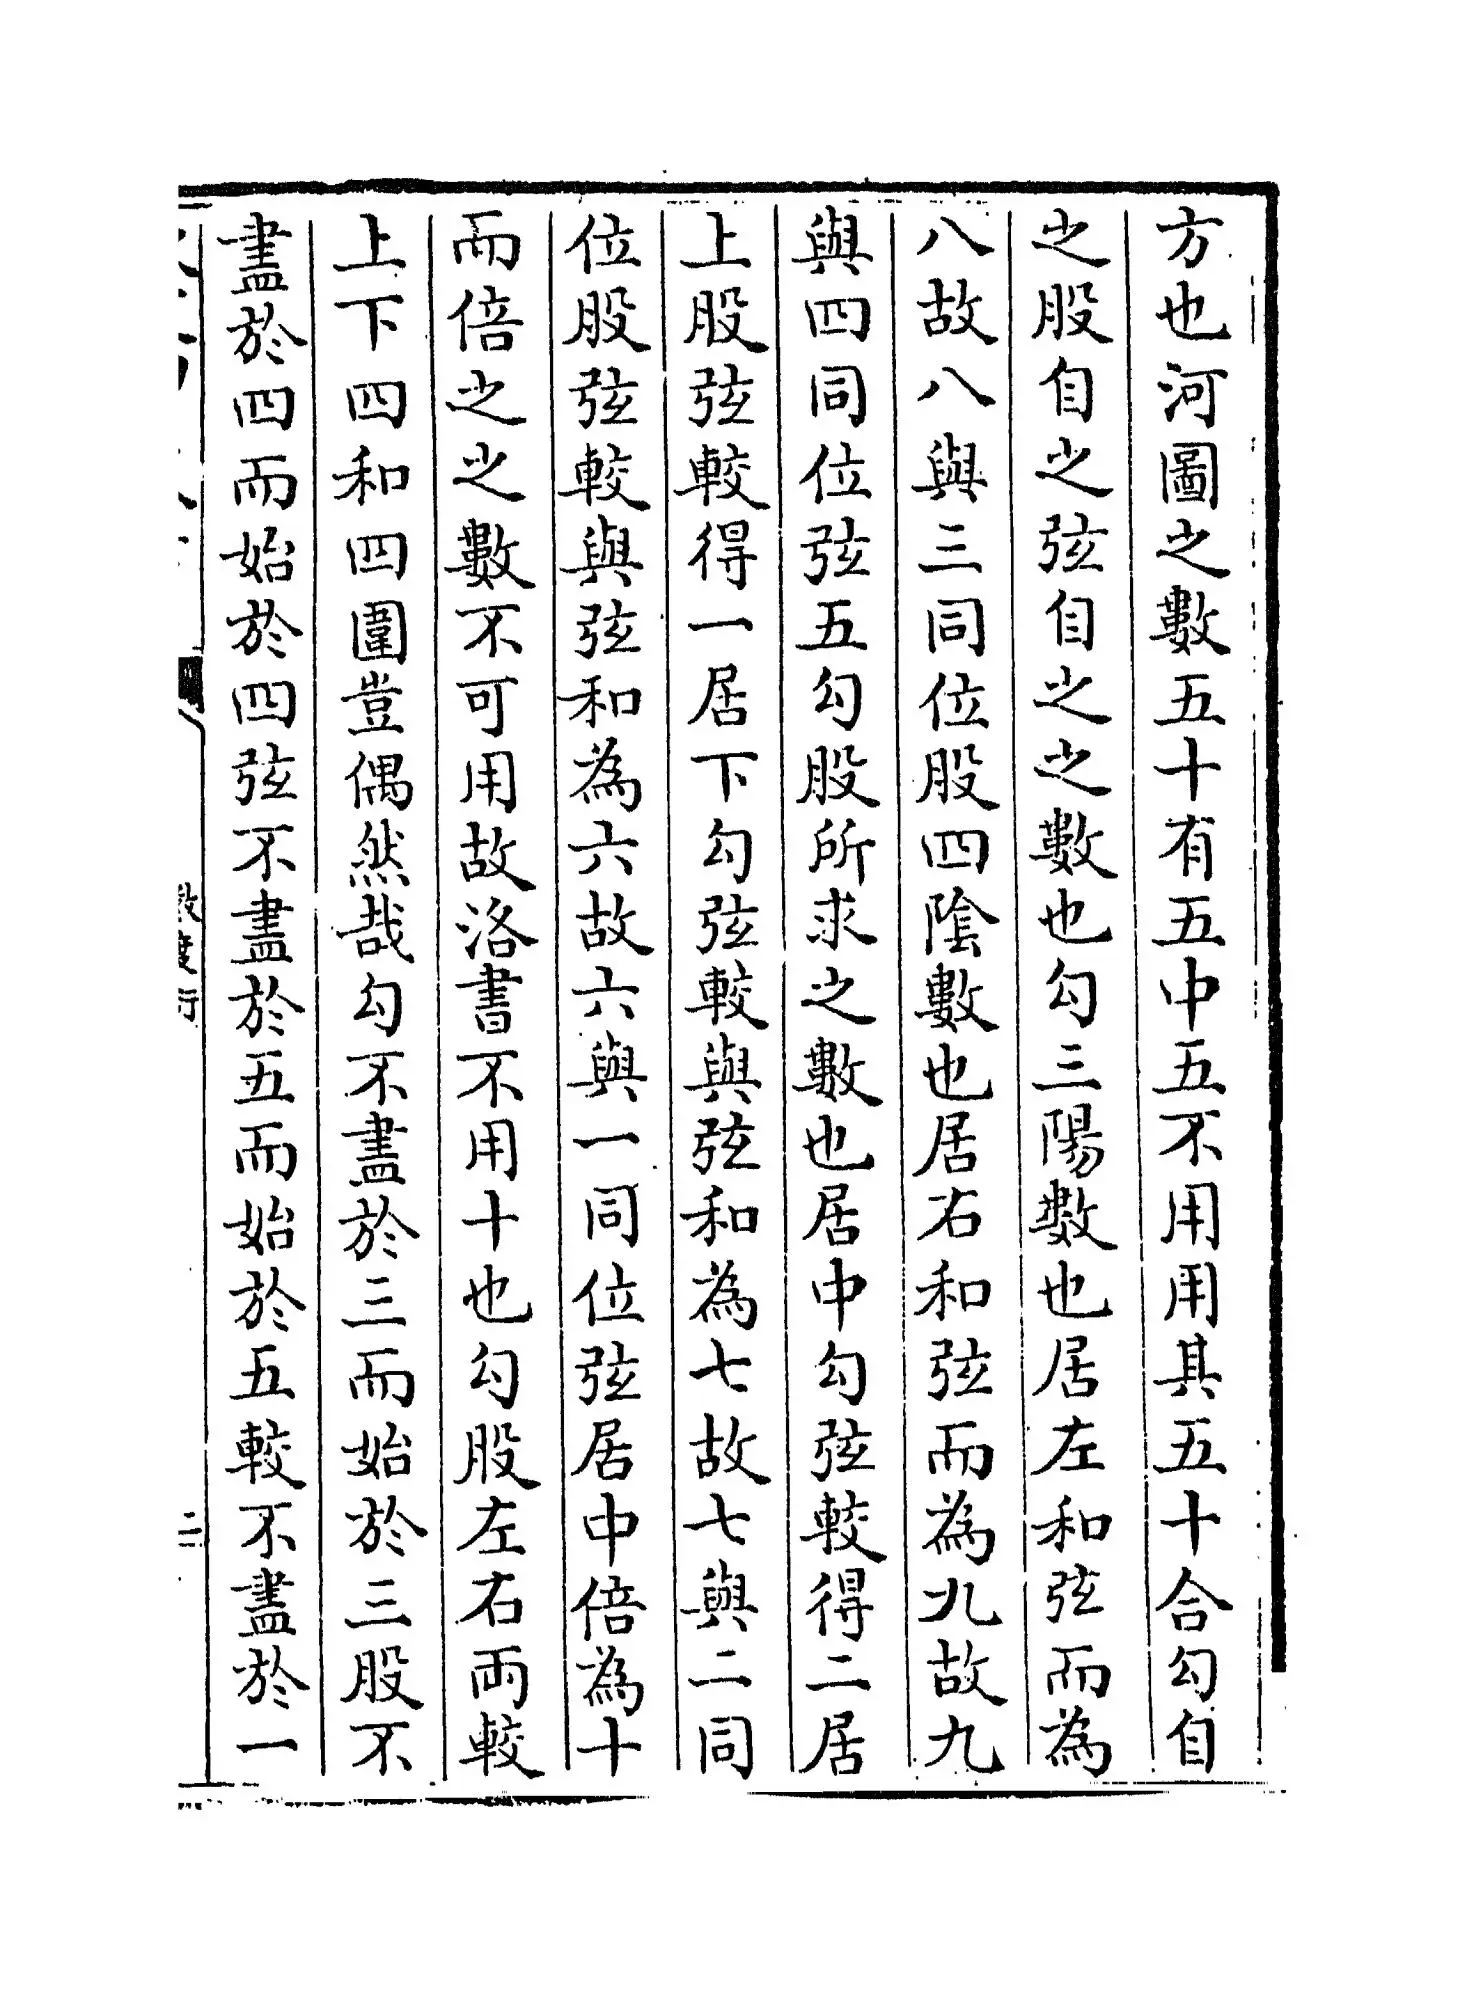 方也河圖之數五十有五中五不用用其五十合勾自
之股自之弦自之之數也勾三陽數也居左和弦而為
八故八與三同位股四陰數也居右和弦而為九故九
與四同位弦五勾股所求之數也居中勾弦較得二居
上股弦較得一居下勾弦較與弦和為七故七與二同
位股弦較與弦和為六故六與一同位弦居中倍為十
而倍之之數不可用故洛書不用十也勾股左右兩較
上下四和四圍豈偶然哉勾不盡於三而始於三股不
盡於四而始於四弦不盡於五而始於五較不盡於一
數度衍
二